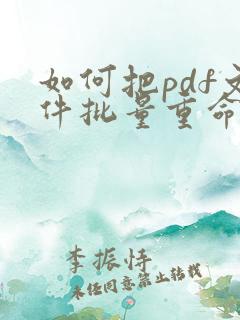 如何把pdf文
件批量重命
李振恃
未经同意禁止转载